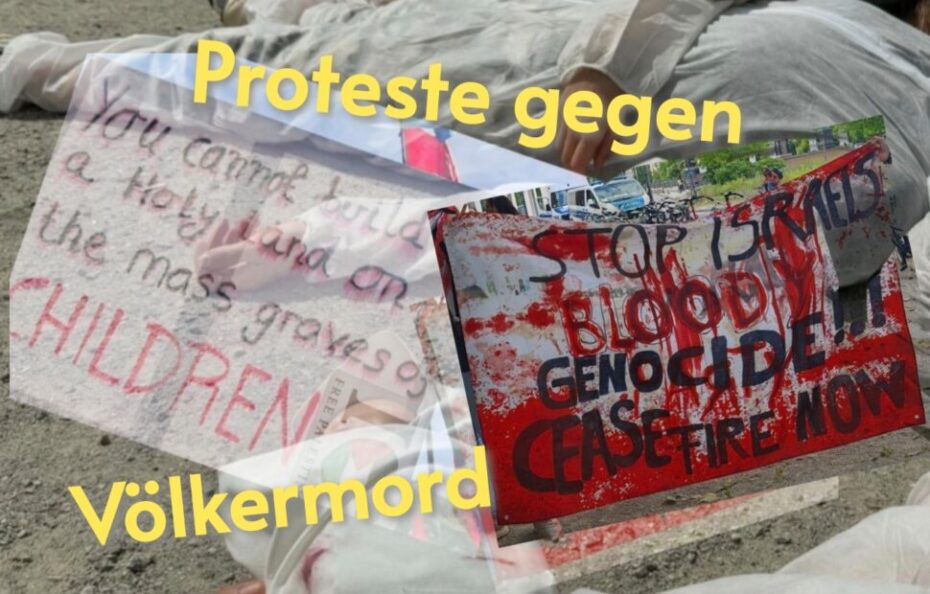 Proteste gegen
You cannot build
a Holy Land on
the mass graves of
CHILDREN
STOP ISRAELS
BLOODY
GENOCIDE!!!
CEASEFIRE NOW
FREE
Völkermord